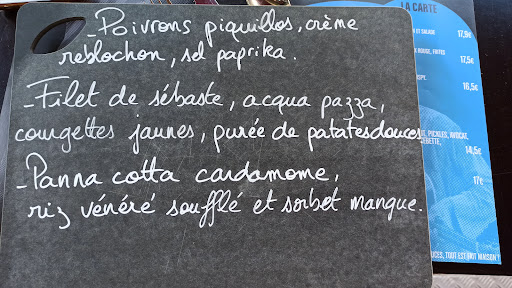 - Poivrons piquillos, crème
reblochon, sel paprika.
- Filet de sébaste, acqua pazza,
courgettes jaunes, purée de patates douces
- Panna cotta cardamome,
riz vénéré soufflé et sorbet mangue.
LA CARTE
ET SALADE
17,9€
ROUGE, FRITES
17,5€
16,5€
PICKLES, AVOCAT,
14,5€
17€
TOUT EST FAIT MAISON !